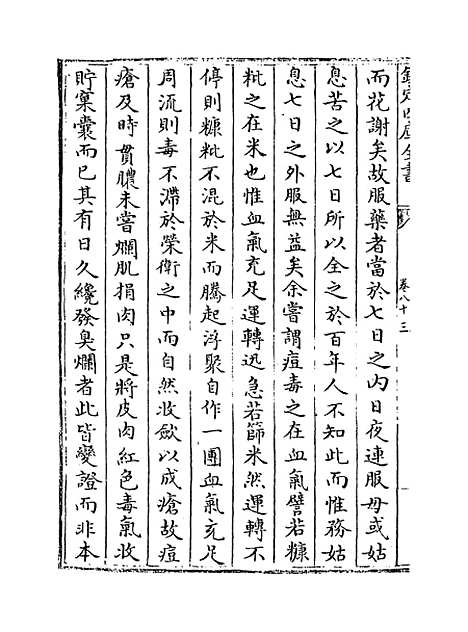 欽定四庫全書
卷八十三
而花謝矣故服藥者當於七日之內日夜連服毋或姑
息苦之以七日所以全之於百年人不知此而惟務姑
息七日之外服無益矣余嘗謂痘毒之在血氣譬若糠
粃之在米也惟血氣充足運轉迅急若篩米然運轉不
停則糠粃不混於米而騰起浮聚自作一團血氣充足
周流則毒不滯於榮衛之中而自然收斂以成瘡故痘
瘡及時貫膿未嘗爛肌損肉只是將皮肉紅色毒氣收
貯窠囊而已其有日久纔發臭爛者此皆變證而非本